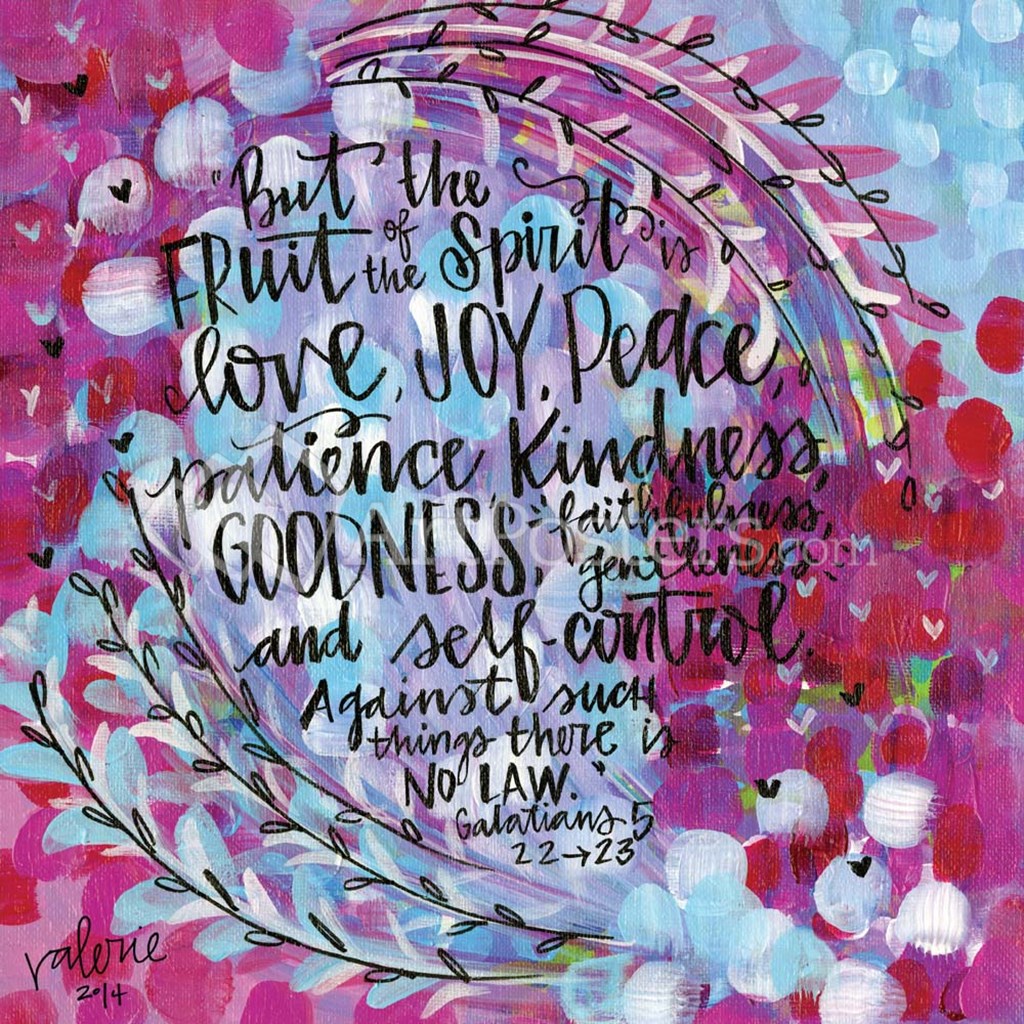 "But the
FRuit of the Spirit is
love, JOY, Peace,
patience, Kindness,
GOODNESS, faithfulness,
gentleness
and self-control.
Against such
things there is
NO LAW."
Galatians 5
22→23
valerie
2014
ArtPosters.com